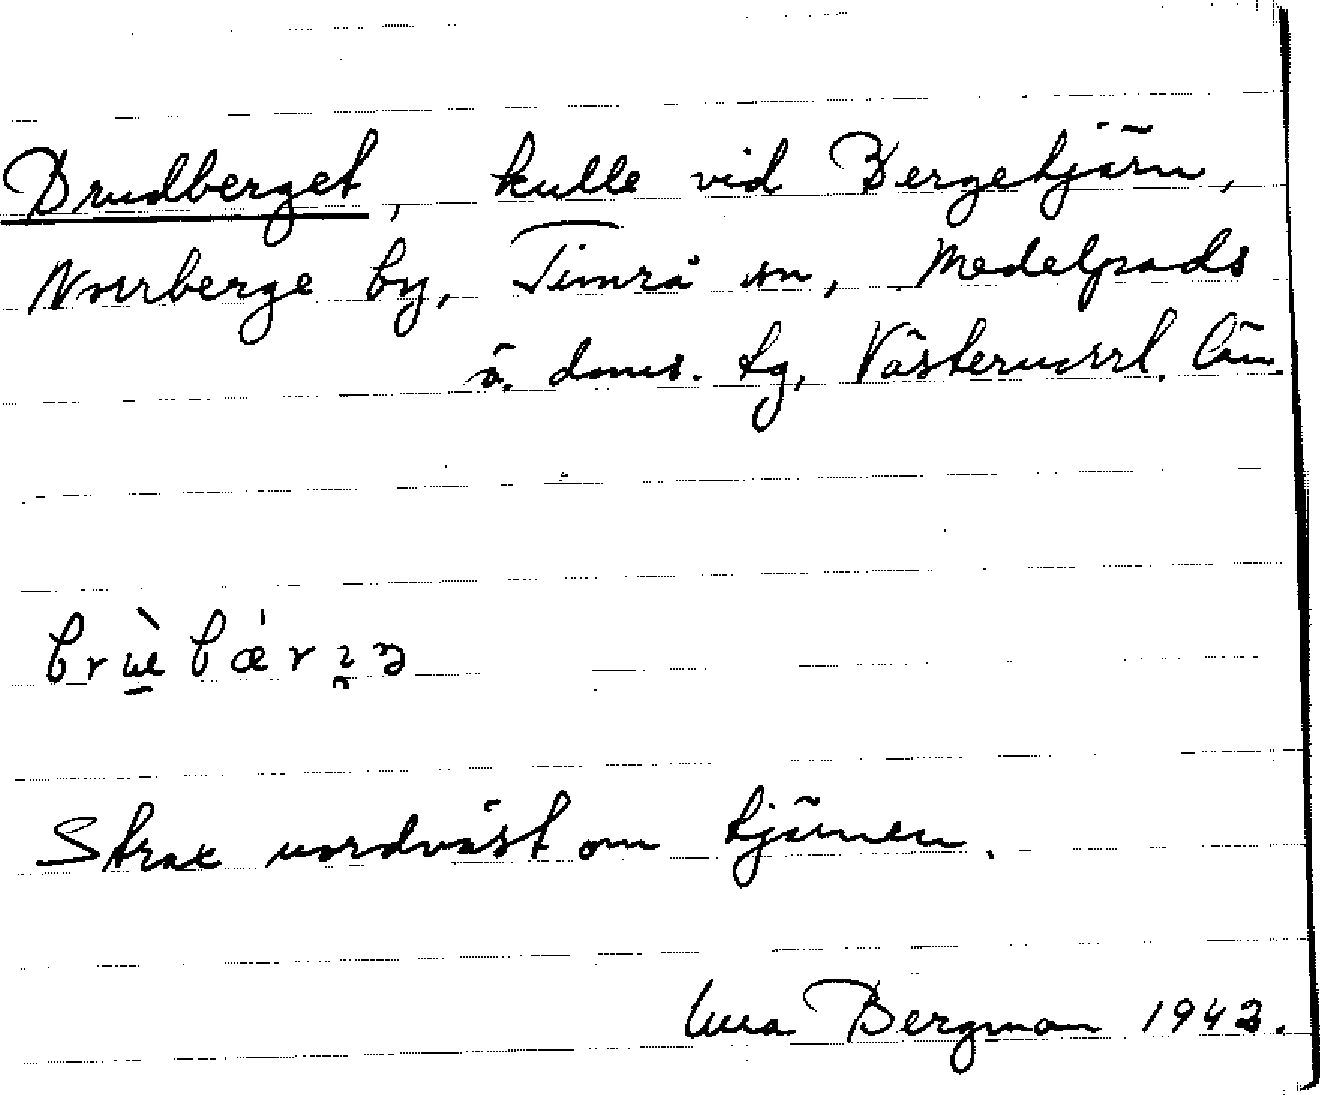 Brudberget, kulle vid Bergetjärn,
Norrberge by, Timrå sn, Medelpads
ö. doms. tg, Västernorrl. län.
Strax nordväst om tjärnen.
Bergman 1943.